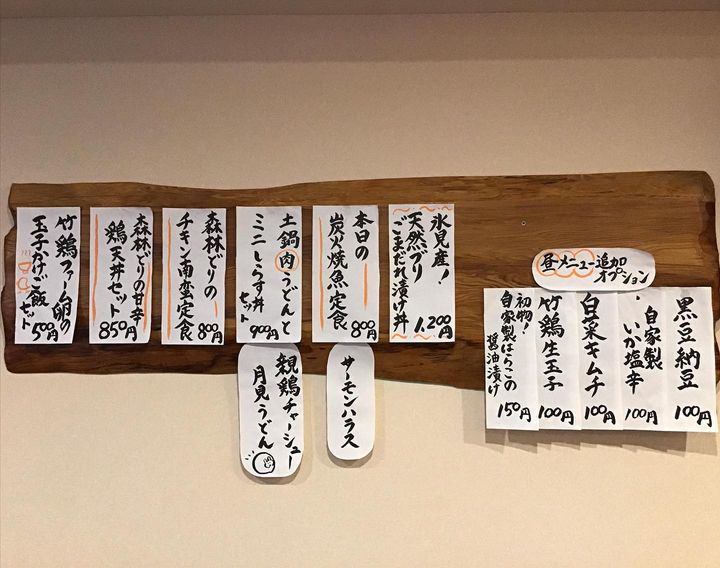 氷見産!
天然ぶり
ごまだれ漬け丼
1,200円
本日の
炭火焼魚定食
800円
サーモンハラス
土鍋肉うどんと
ミニしらす丼
セット
900円
親鶏チャーシュー
月見うどん
森林どりの
チキン南蛮定食
800円
森林どりの甘辛
鶏天丼セット
850円
竹鶏ファーム卵の
玉子かけご飯
セット
500円
昼メニュー追加
オプション
黒豆納豆
100円
自家製
いか塩辛
100円
白菜キムチ
100円
竹鶏生玉子
100円
初物!
自家製はらこの
醤油漬け
150円